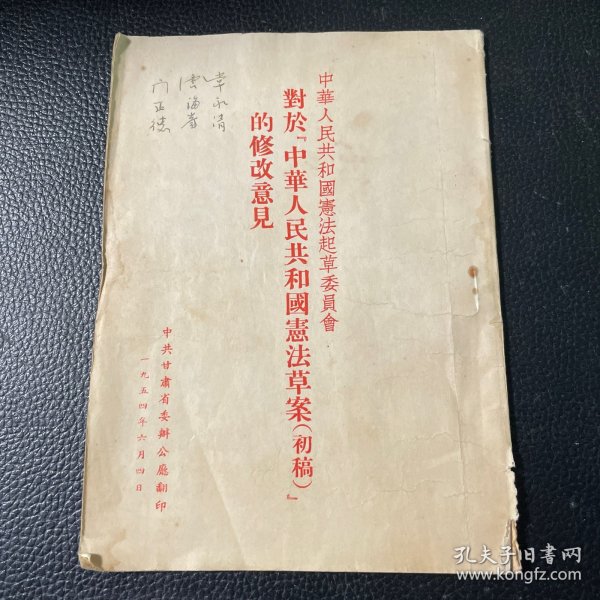 中華人民共和國憲法起草委員會
對於『中華人民共和國憲法草案(初稿)』
的修改意見
中共甘肅省委辦公廳翻印
一九五四年六月四日
孔夫子旧書网
www.kongfz.com